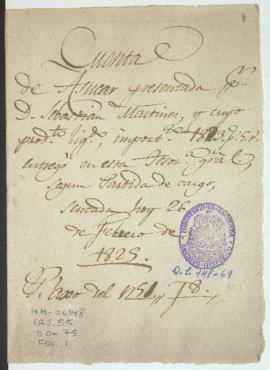 Cuenta
de Azucar presentada pr
D. Sebastian Martinez, y cuyo
prodto liqo, importe 1823 ps 5 rs
entregó en esta Tesora gral,
segun Partida de cargo,
sentada hoy 26
de Febrero de
1825.
del 1251
O.L. 148-69
HH-06148
CAJ. 55
DOC. 75
FOL. 1